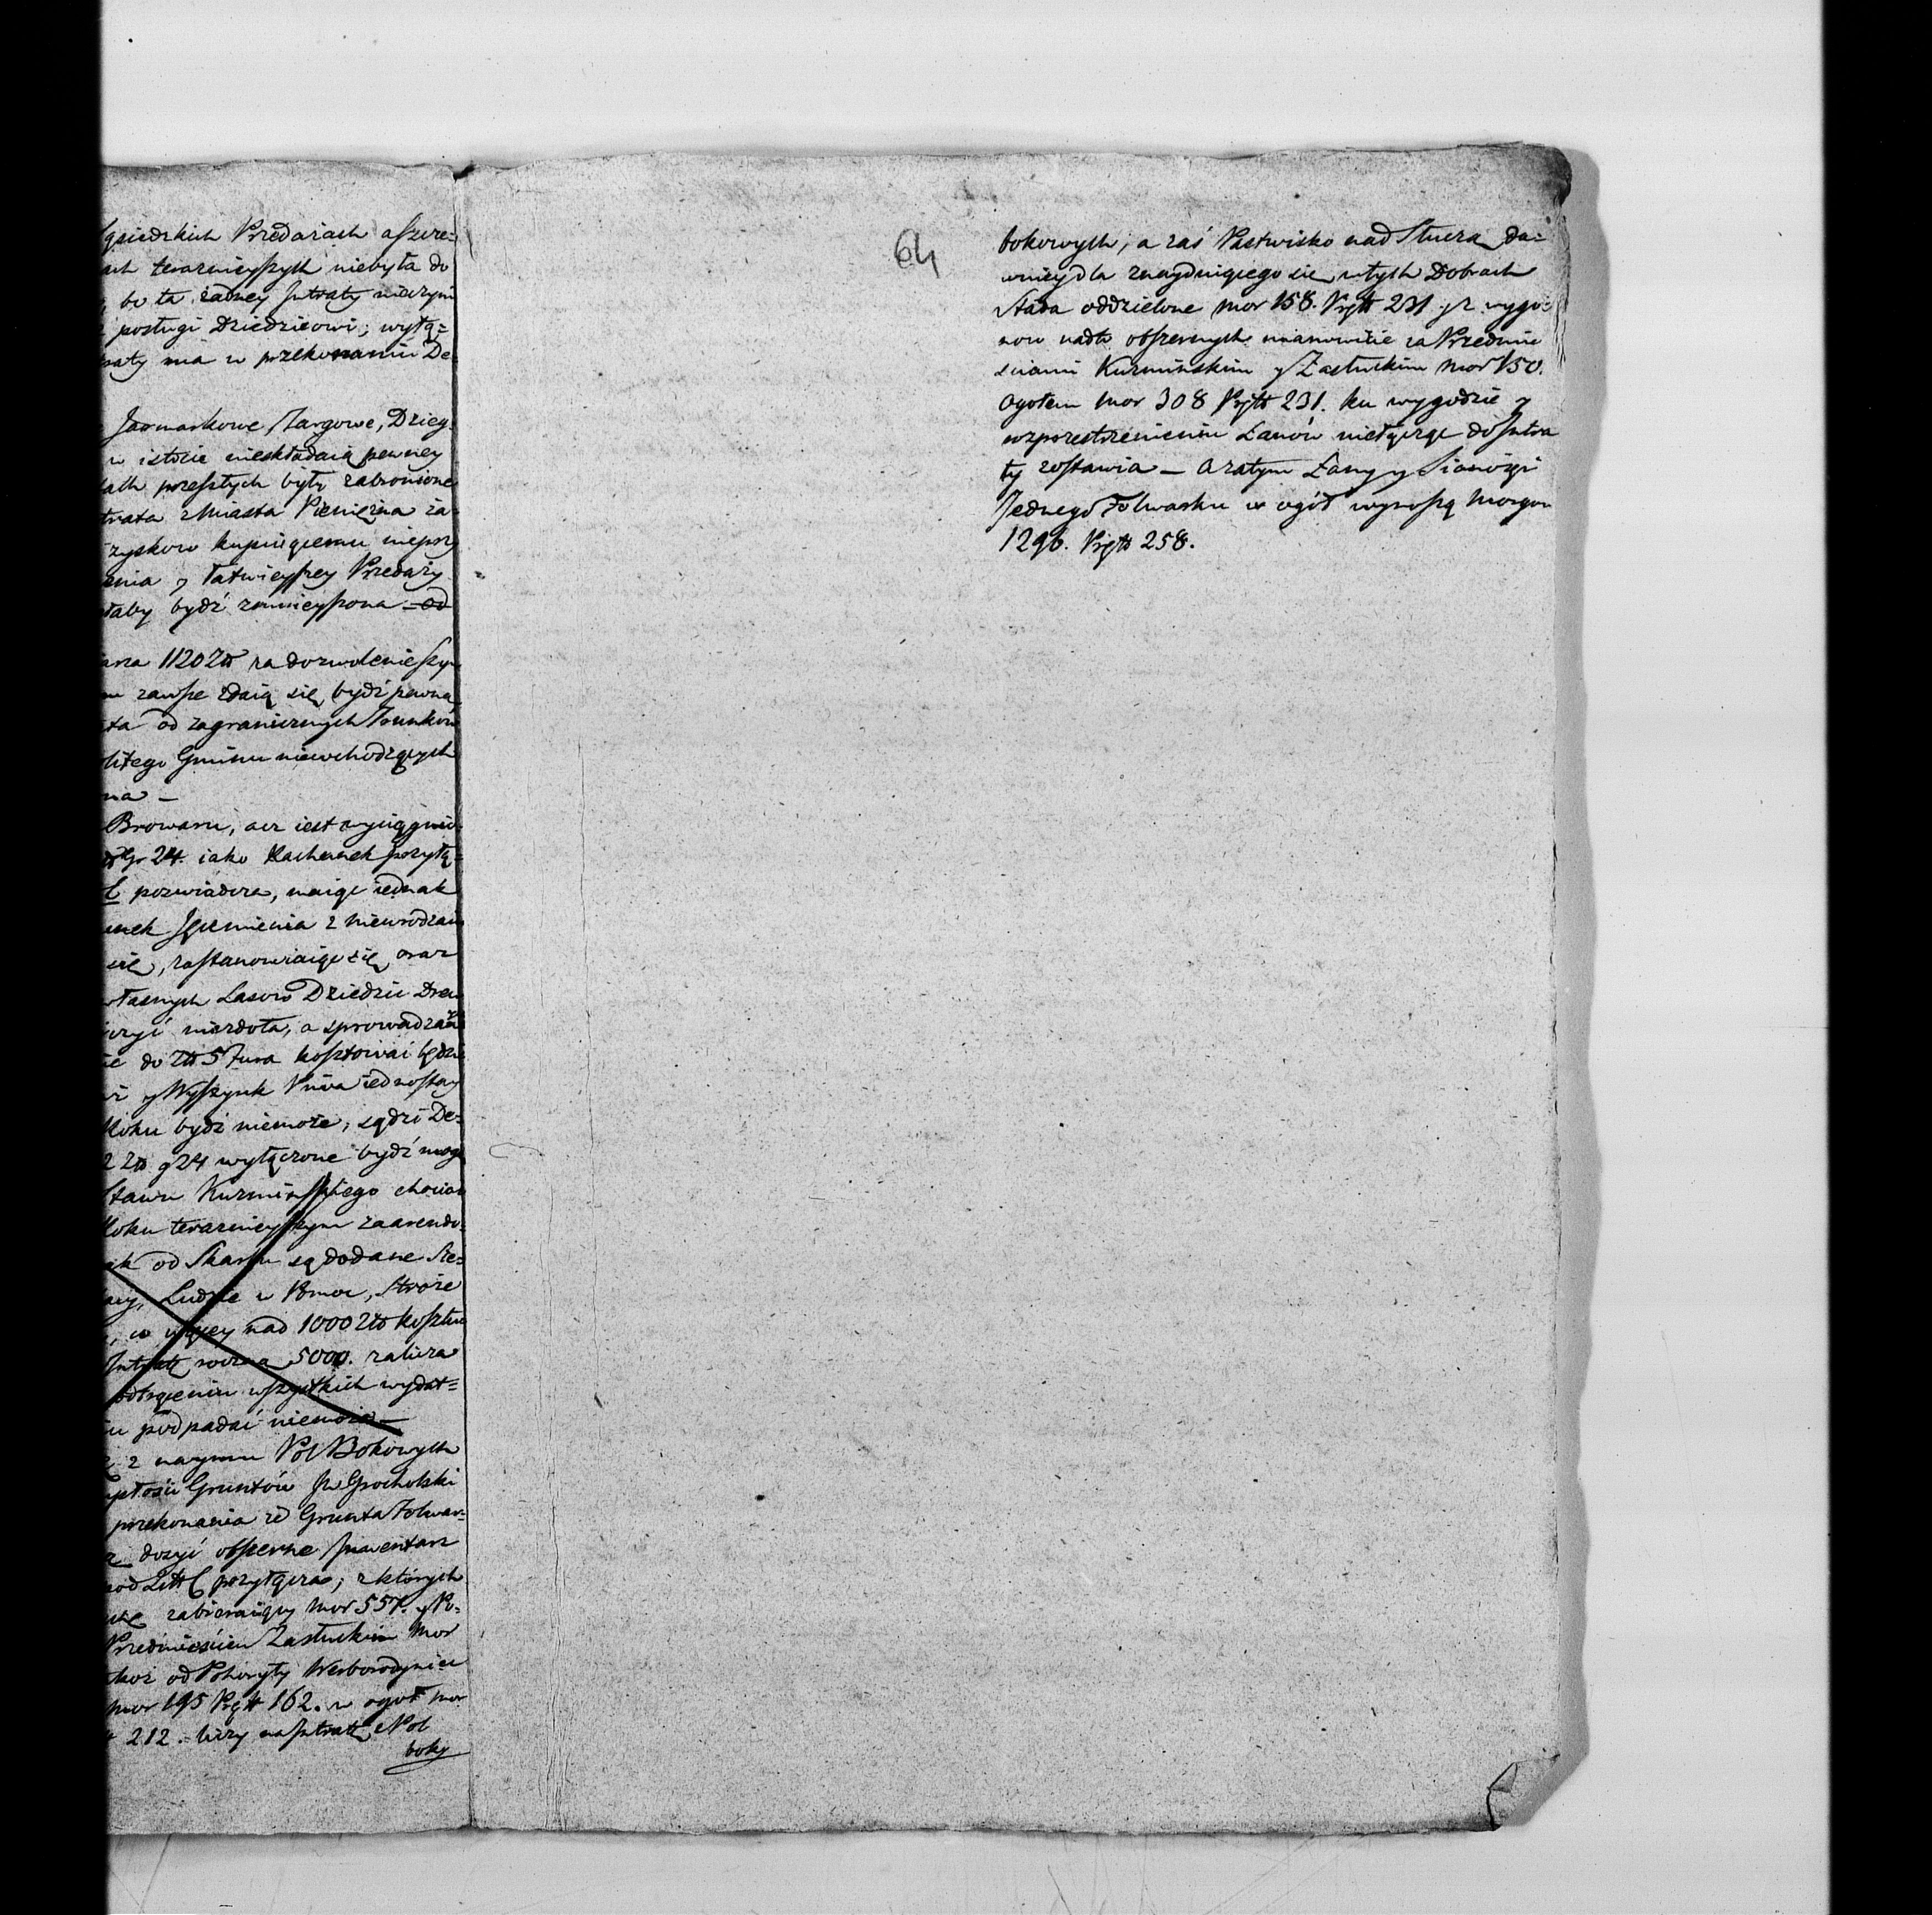 sąsiedzkich Przedażach aszcze-
ach terazniejszych niebyła do
bo ta żadney Jntraty nieczyni
posługi Dziedzicowi; wyłą-
raty ma w przekonaniu De-
Jarmarkowe Targowe, Dzieg-
w istocie nieskładaią pewney
lath przeszłych były zabronione
trata z Miasta Pieniężna za-
zyskow kupuiącemu nieprzy
enia y łatwieyszey Przedaży
łaby bydź zmnieyszona od
1120 Zł za dozwolenie szyn
zawsze zdaią się bydź pewną
ta od zagranicznych Trunków
litego Gminu niewchodzących
na –
Browaru, acz iest wyciągnio-
Gr 24. iako Rachunek przyłą-
C pozwiadcza, maiąc iednak
unek Jęczmienia z nieurodzaiu
cie, zastanowiaiąc się oraz
własnych Lasow Dziedzic Drew
czyć niezdoła, a sprowadzać
ie do Zł 5 Fura kosztować będzie
y Wyszynk Piwa iednostay
Roku bydź niemoże, sądzi De-
2 Zł g 24 wyłączone bydź mogą
Stawu Kuzmińskiego chociaż
Roku terazniejszym zaarendo-
ak od Skarbu są dodane Sie-
Ludzie w Pomoc, Stroże
w więcey nad 1000 Zł kosztu
Jntratę roczną 5000. zabiera
odtrąceniu wszystkich wydat-
u podpadać niemoże –
z naymu Pol Bokowych
Gruntów Jw Grocholski
przekonania że Grunta Folwar-
dozyć obszerne Jnwentarz
pod Litt C przyłącza; z których
zabieraiący Mor 557. y Po-
Przedmieściem Zasłuckim Mor
koż od Pohoryły Werborodyniec
Mor 195 Pręt 162. w ogoł mor
212. liczy na Jntratę Pol
boky
64
bokowych; a zaś Pastwisko nad Słuczą da-
wniey dla znayduiącego się w tych Dobrach
Stada oddzielone Mor 158. Pręt 231. y z wygo-
now nadto obszernych mianowicie za Przedmie
sciami Kuzmińskim y Zasłuckim Mor 150.
Ogołem Mor 308 Pręt 231. ku wygodzie y
rozprzestrzenieniu Łanów niełącząc do Jntra
ty zostawia – A zatym Łany y Sianożęci
Jednego Folwarku w ogół wynoszą Morgow
1296. Pręt 258.